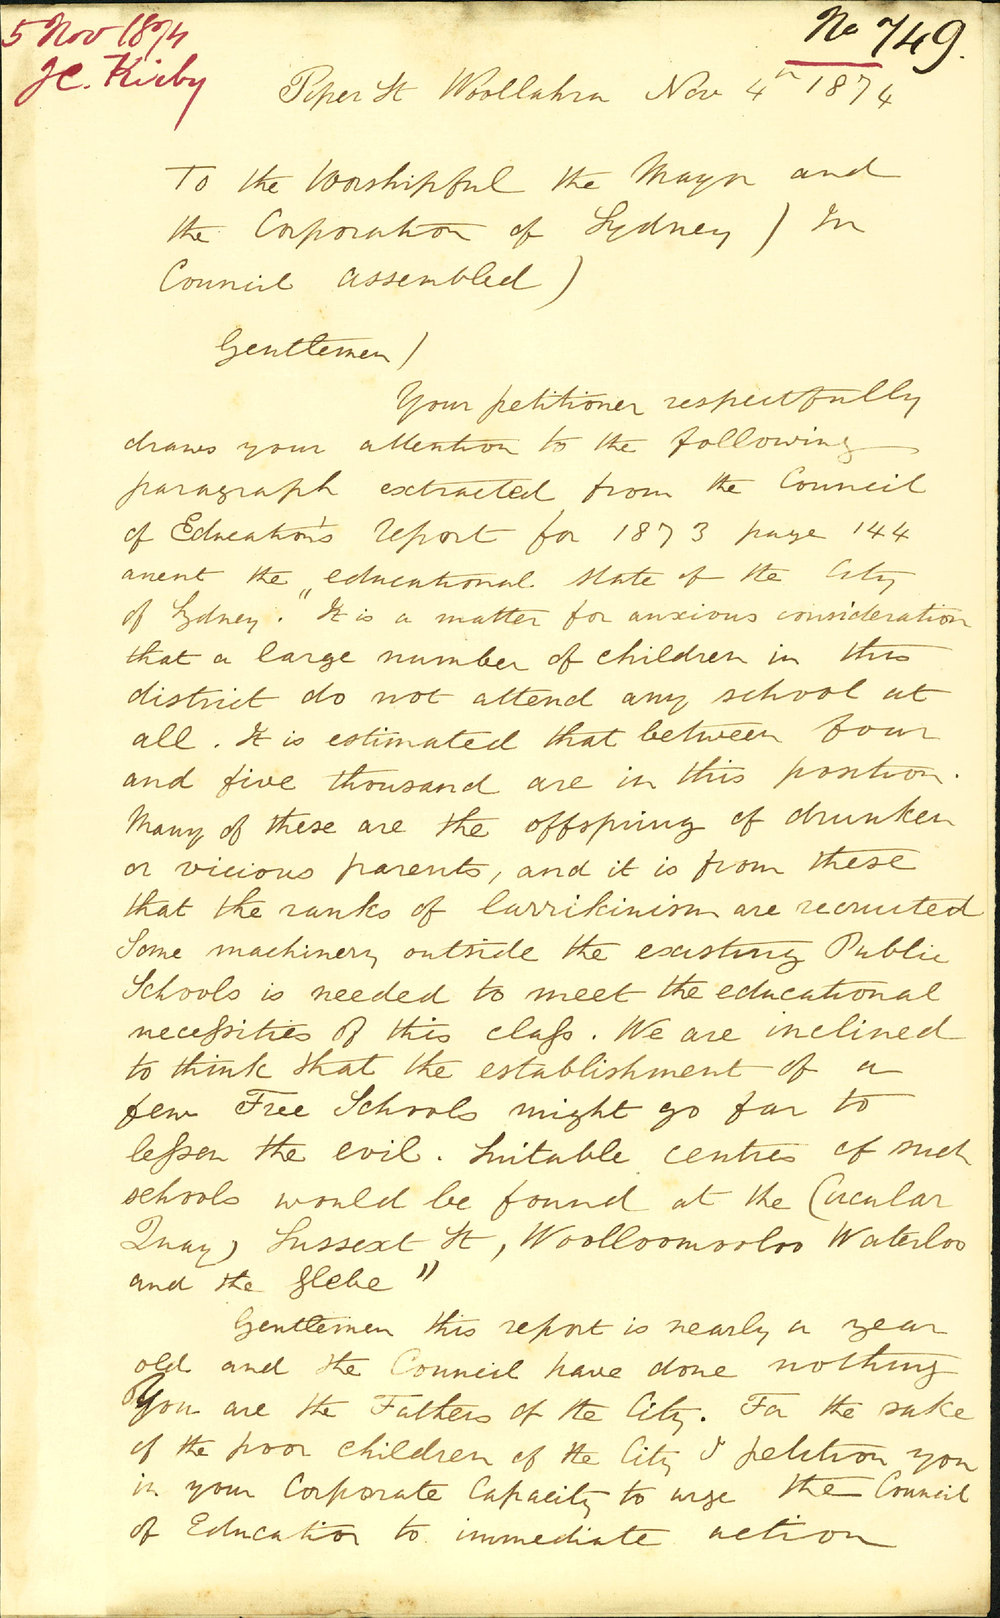 5 Nov 1874
J C. Kirby
No 749.
Piper St Woollahra Nov 4th 1874
To the Worshipful the Mayor and
the Corporation of Sydney ) In
Council assembled )
Gentlemen /
Your petitioner respectfully
draws your attention to the following
paragraph extracted from the Council
of Education's report for 1873 page 144
anent the "educational state of the City
of Sydney. "It is a matter for anxious consideration
that a large number of children in this
district do not attend any school at
all. It is estimated that between four
and five thousand are in this position.
Many of these are the offspring of drunken
or vicious parents, and it is from these
that the ranks of larrikinism are recruited
Some machinery outside the existing Public
Schools is needed to meet the educational
necessities of this class. We are inclined
to think that the establishment of a
few Free Schools might go far to
lessen the evil. Suitable centres of such
schools would be found at the Circular
Quay, Sussext St, Woolloomooloo Waterloo
and the Glebe"
Gentlemen this report is nearly a year
old and the Council have done nothing
You are the Fathers of the City. For the sake
of the poor children of the City I petition you
in your Corporate Capacity to urge the Council
of Education to immediate action